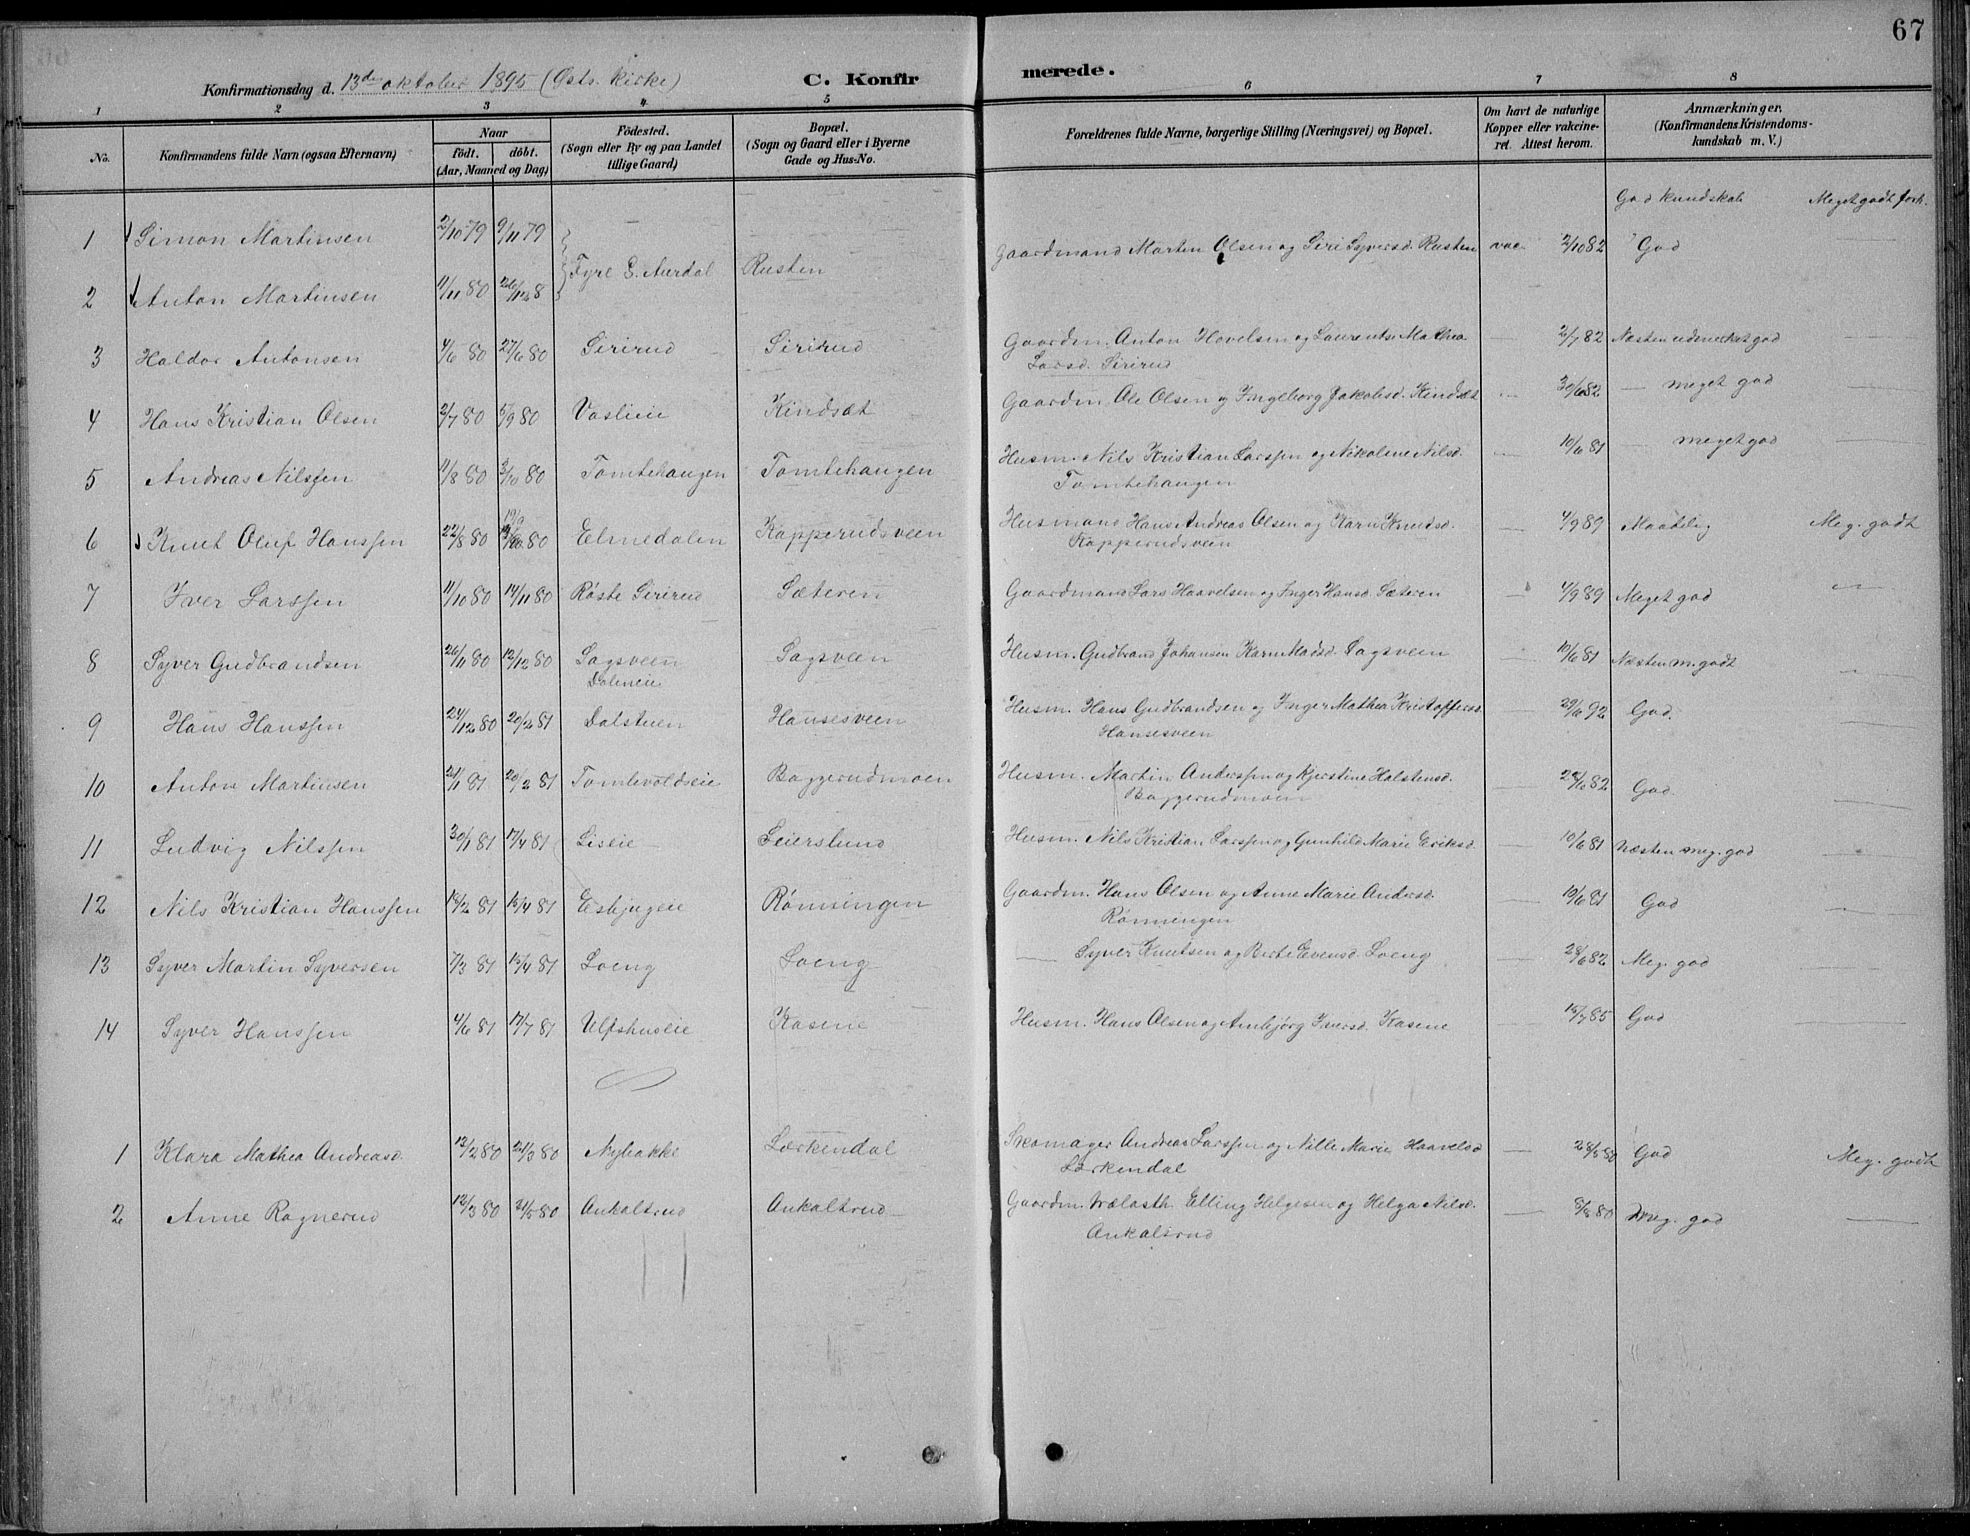 67
Konfirmationsdag d. 13de oktober 1895 (Østs. kirke) C. Konfirmerede.
1 2 3 4 5 6 7 8
No. Konfirmandens fulde Navn (ogsaa Efternavn) Naar födt. döbt. (Aar, Maaned og Dag) Födested. (Sogn eller By og paa Landet tillige Gaard) Bopæl. (Sogn og Gaard eller i Byerne Gade og Hus-No. Forældrenes fulde Navne, borgerlige Stilling (Næringsvei) og Bopæl. Om havt de naturlige Kopper eller vakcineret. Attest herom. Anmærkninger. (Konfirmandens Kristendomskundskab m. V.)
God kundskab Meget godt forh.
1 Simon Martinsen 2/10 79 9/11 79 Fyrl S. Aurdal Rusten Gaardmand Martin Olsen og Siri Syversd. Rusten vac. 2/10 82 God
2 Anton Martinsen 11/11 80
3 Haldor Antonsen 4/6 80 27/6 80 Sirirud Sirirud Gaardm. Anton Hovelsen og Laurentse Mathea 2/7 82 Næsten udmerket god
Larsd. Sirirud
4 Hans Kristian Olsen 2/7 80 5/9 80 Vaslieie Kindsæt Gaardm. Ole Olsen og Ingeborg Jakobsd. Kindsæt 30/6 82 — meget god
5 Andreas Nilssen 11/8 80 3/10 80 Tomtehaugen Tomtehaugen Husm. Nils Kristian Larssen og Nikoline Nilsd. 10/6 81 — meget god
Tomtehaugen
6 Knut Oluf Hanssen 22/8 80 Elmedalen Kapperudsveen Husmand Hans Andreas Olsen og Kari Knudsd. 4/9 89 Maadelig Meg. godt
Kapperudsveen
7 Iver Larssen 11/10 80 14/11 80 Røste Sirirud Sæteren Gaardmand Lars Haavelsen og Inger Hansd. Sæteren 4/9 89 Meget god
8 Syver Gudbrandsen 26/11 80 12/12 80 Sagsveen Sagsveen Husm. Gudbrand Johansen Kari Madsd. Sagsveen 10/6 81 Næsten m. godt
Daleneie
9 Hans Hanssen 24/12 80 20/2 81 Dalstuen Hansesveen Husm. Hans Gudbrandsen og Inger Mathea Kristoffersd. 29/6 92 God.
Hansesveen
10 Anton Martinsen 21/1 81 20/2 81 Tomlevoldseie Baggerudmoen Husm. Martin Anderssen og Kjerstine Halstensd. 28/6 82 God.
Baggerudmoen
11 Ludvig Nilssen 30/1 81 17/4 81 Liseie Seierslund Husm. Nils Kristian Larssen og Gunhild Marie Eriksd. 10/6 81 Næsten meg. god
12 Nils Kristian Hanssen 13/2 81 15/4 81 Esbjugeie Rønningen Gaardm. Hans Olsen og Anne Marie Andersd. 10/6 81 God
Rønningen
13 Syver Martin Syversen 7/3 81 15/4 81 Loeng Loeng — Syver Knutsen og Berte Evensd. Loeng 28/6 82 Meg. god
14 Syver Hanssen 4/6 81 17/7 81 Ulfshuseie Kasene Husm. Hans Olsen og Ambjørg Iversd. Kasene 15/7 85 God
1 Klara Mathea Andreasd. 13/2 80 21/3 80 Nybakke Lærkendal Skomager Andreas Larssen og Nille Marie Haavelsd. 28/5 80 God Meg. godt
Lærkendal
2 Anne Ragnerud 12/3 80 Aukaltsrud Aukaltsrud Gaardm. Vælasth. Elling Helgesen og Helga Nilsd. 8/8 80 Meg. god
Aukaltsrud